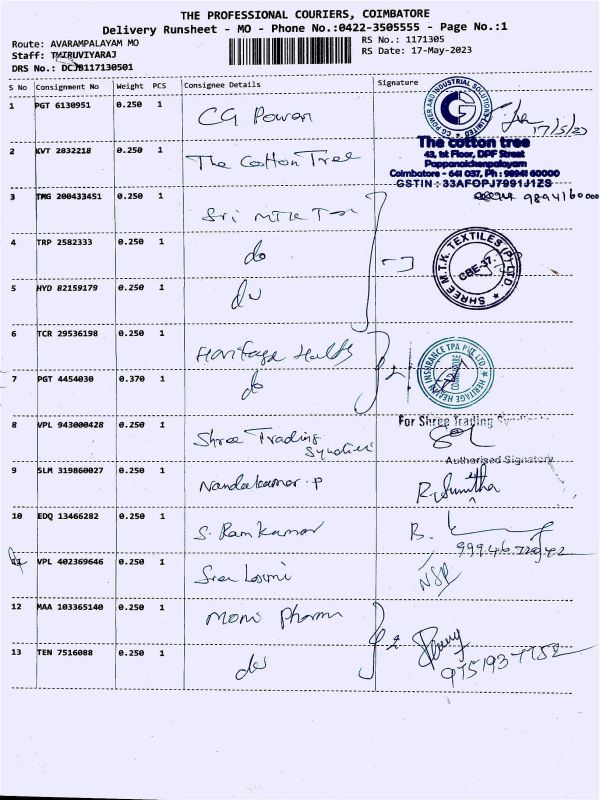 THE PROFESSIONAL COURIERS, COIMBATORE
Delivery Runsheet - MO - Phone No.:0422-3505555 - Page No.:1
Route: AVARAMPALAYAM MO
RS No.: 1171305
Staff: THIRUVIYARAJ
RS Date: 17-May-2023
DRS No.: DCJB117130501
S No Consignment No Weight PCS Consignee Details Signature
1 PGT 6130951 0.250 1 CG Power
CG POWER AND INDUSTRIAL SOLUTIONS LIMITED
CG
17/5/23
2 KVT 2832218 0.250 1 The Cotton Tree
The cotton tree
43, 1st Floor, DPF Street
Pappanaickenpalayam
Coimbatore - 641 037, Ph : 98941 60000
GSTIN : 33AFOPJ7991J1ZS
9894160000
3 TMG 200433451 0.250 1 Sri MTK Tex
4 TRP 2582333 0.250 1 do
SHREE M.T.K. TEXTILES (P) LTD.
CBE-37
5 HYD 82159179 0.250 1 do
6 TCR 29536198 0.250 1 Heritage Health
HERITAGE HEALTH INSURANCE TPA PVT. LTD.
COIMBATORE
7 PGT 4454030 0.370 1 do
8 VPL 943000428 0.250 1 Shree Trading
Syndicate
For Shree Trading Syndicate
Authorised Signatory
9 SLM 319860027 0.250 1 Nandakumar.P
R. Sumitha
10 EDQ 13466282 0.250 1 S. Ram Kumar
B.
11 VPL 402369646 0.250 1 Sree Laxmi
NSP
12 MAA 103365140 0.250 1 Mono Pharma
2
13 TEN 7516088 0.250 1 do